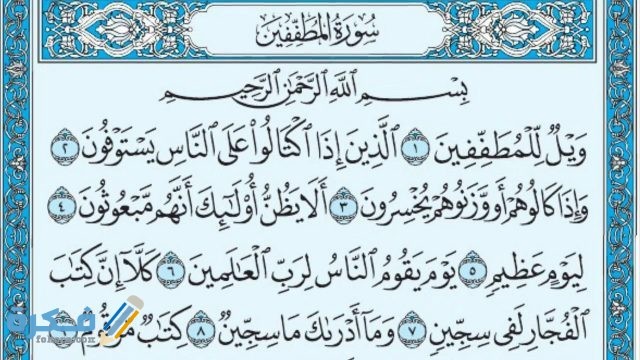 سُورَةُ المُطَفِّفِينَ
بِسْمِ اللَّهِ الرَّحْمَٰنِ الرَّحِيمِ
وَيْلٌ لِّلْمُطَفِّفِينَ ١ الَّذِينَ إِذَا اكْتَالُوا عَلَى النَّاسِ يَسْتَوْفُونَ ٢
وَإِذَا كَالُوهُمْ أَو وَّزَنُوهُمْ يُخْسِرُونَ ٣ أَلَا يَظُنُّ أُولَٰئِكَ أَنَّهُم مَّبْعُوثُونَ ٤
لِيَوْمٍ عَظِيمٍ ٥ يَوْمَ يَقُومُ النَّاسُ لِرَبِّ الْعَالَمِينَ ٦ كَلَّا إِنَّ كِتَابَ
الْفُجَّارِ لَفِي سِجِّينٍ ٧ وَمَا أَدْرَاكَ مَا سِجِّينٌ ٨ كِتَابٌ مَّرْقُومٌ
فكرة